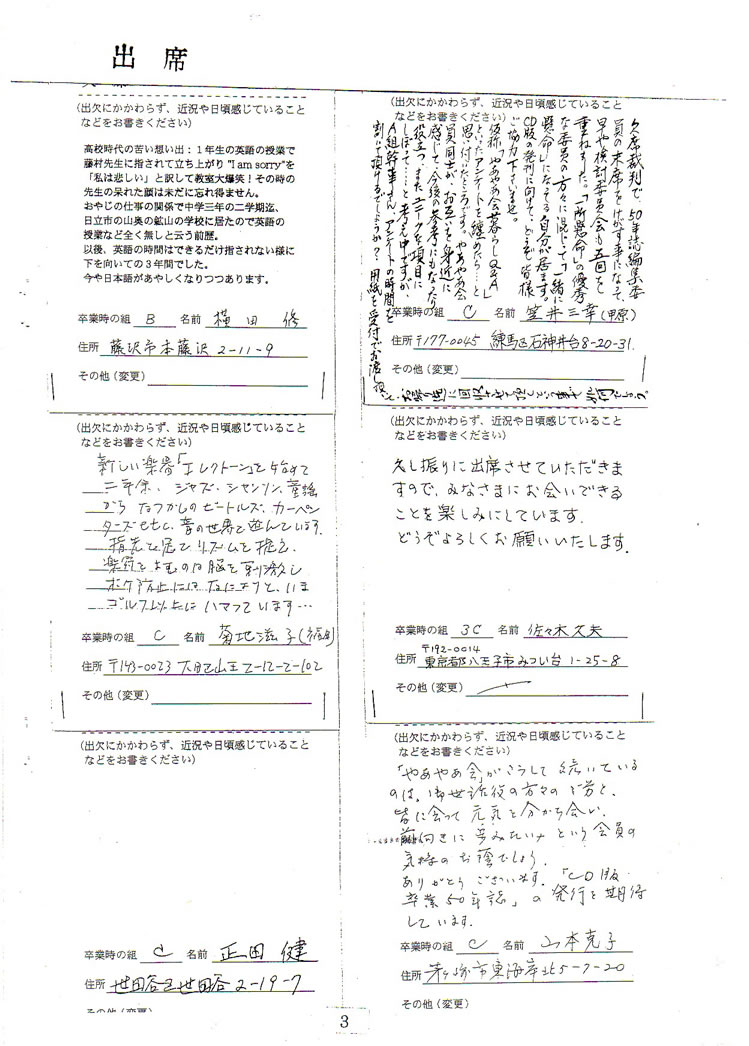 出席
(出欠にかかわらず、近況や日頃感じていること
などをお書きください)
高校時代の苦い想い出：1年生の英語の授業で
藤村先生に指されて立ち上がり "I am sorry"を
「私は悲しい」と訳して教室大爆笑！その時の
先生の呆れた顔は未だに忘れ得ません。
おやじの仕事の関係で中学三年の二学期迄、
日立市の山奥の鉱山の学校に居たので英語の
授業など全く無しと云う前歴。
以後、英語の時間はできるだけ指されない様に
下を向いての3年間でした。
今や日本語があやしくなりつつあります。
卒業時の組 B 名前 横田 修
住所 藤沢市本藤沢 2-11-9
その他（変更）
(出欠にかかわらず、近況や日頃感じていること
などをお書きください)
欠席裁判で、50年誌編集委
員の末席をけがす事になって、
早や検討委員会も五回を
重ねました。「所懸命」の優秀
な委員の方々に混じって「一緒に
懸命」になってる自分が居ます。
CD版の発刊に向けて、どうぞ皆様
ご協力下さいませ。
仮称「やあやあ会暮らしQ&A」
といったアンケートを纏めたら…と
思い付いたところです。やあやあ会
員同士が、お互いを身近に
感じて、今後の参考にもなったり
役立つ、またユニークな項目に
しぼって…と考え中ですが、
A組幹事さん、アンケートの時間を
割いて頂けるでしょうか？用紙を受付でお渡し
卒業時の組 C 名前 笠井三幸(甲原)
住所 〒177-0045 練馬区石神井台8-20-31
その他（変更）
(出欠にかかわらず、近況や日頃感じていること
などをお書きください)
新しい楽器「エレクトーン」を始めて
二年余、ジャズ、シャンソン、童謡
から なつかしのビートルズ、カーペン
ターズせしめ、音の世界で遊んでいます。
指先で足でリズムを捉え、
楽符をよむのは脳を刺激し
ボケ防止にはなによりと、いま
ゴルフ以上に ハマっています…
卒業時の組 C 名前 菊地滋子(福田)
住所 〒143-0023 大田区山王 2-12-2-102
その他（変更）
(出欠にかかわらず、近況や日頃感じていること
などをお書きください)
久し振りに出席させていただきま
すので、みなさまにお会いできる
ことを楽しみにしています。
どうぞよろしくお願いいたします。
卒業時の組 3C 名前 佐々木久夫
〒192-0014
住所 東京都八王子市みつい台 1-25-8
その他（変更）
(出欠にかかわらず、近況や日頃感じていること
などをお書きください)
卒業時の組 C 名前 正田 健
住所 世田谷区世田谷2-19-7
その他（変更）
(出欠にかかわらず、近況や日頃感じていること
などをお書きください)
「やあやあ会」がこうして 続いている
のは、御世話役の方々のご苦労と、
皆に会って 元気を分かち合い、
前向きに 歩みたいみ という会員の
気持のお蔭でしょう。
ありがとうございます。「CD版
卒業50年誌」の発行を期待
しています。
卒業時の組 C 名前 山本克子
住所 茅ヶ崎市東海岸北5-7-20
その他（変更）
3